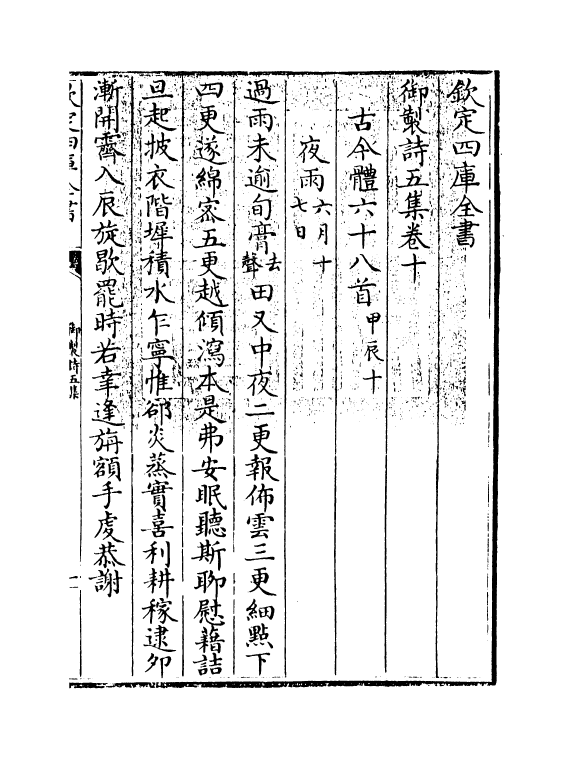 欽定四庫全書
御製詩五集卷十
古今體六十八首甲辰十
夜雨六月十七日
過雨未逾旬膏去聲田又中夜二更報佈雲三更細點下
四更遂綿密五更越傾瀉本是弗安眠聽斯聊慰藉詰
旦起披衣階墀積水乍寧惟郤炎蒸實喜利耕稼逮夘
漸開霽入辰旋歇罷時若幸逢旃額手虔恭謝
御製詩五集
一